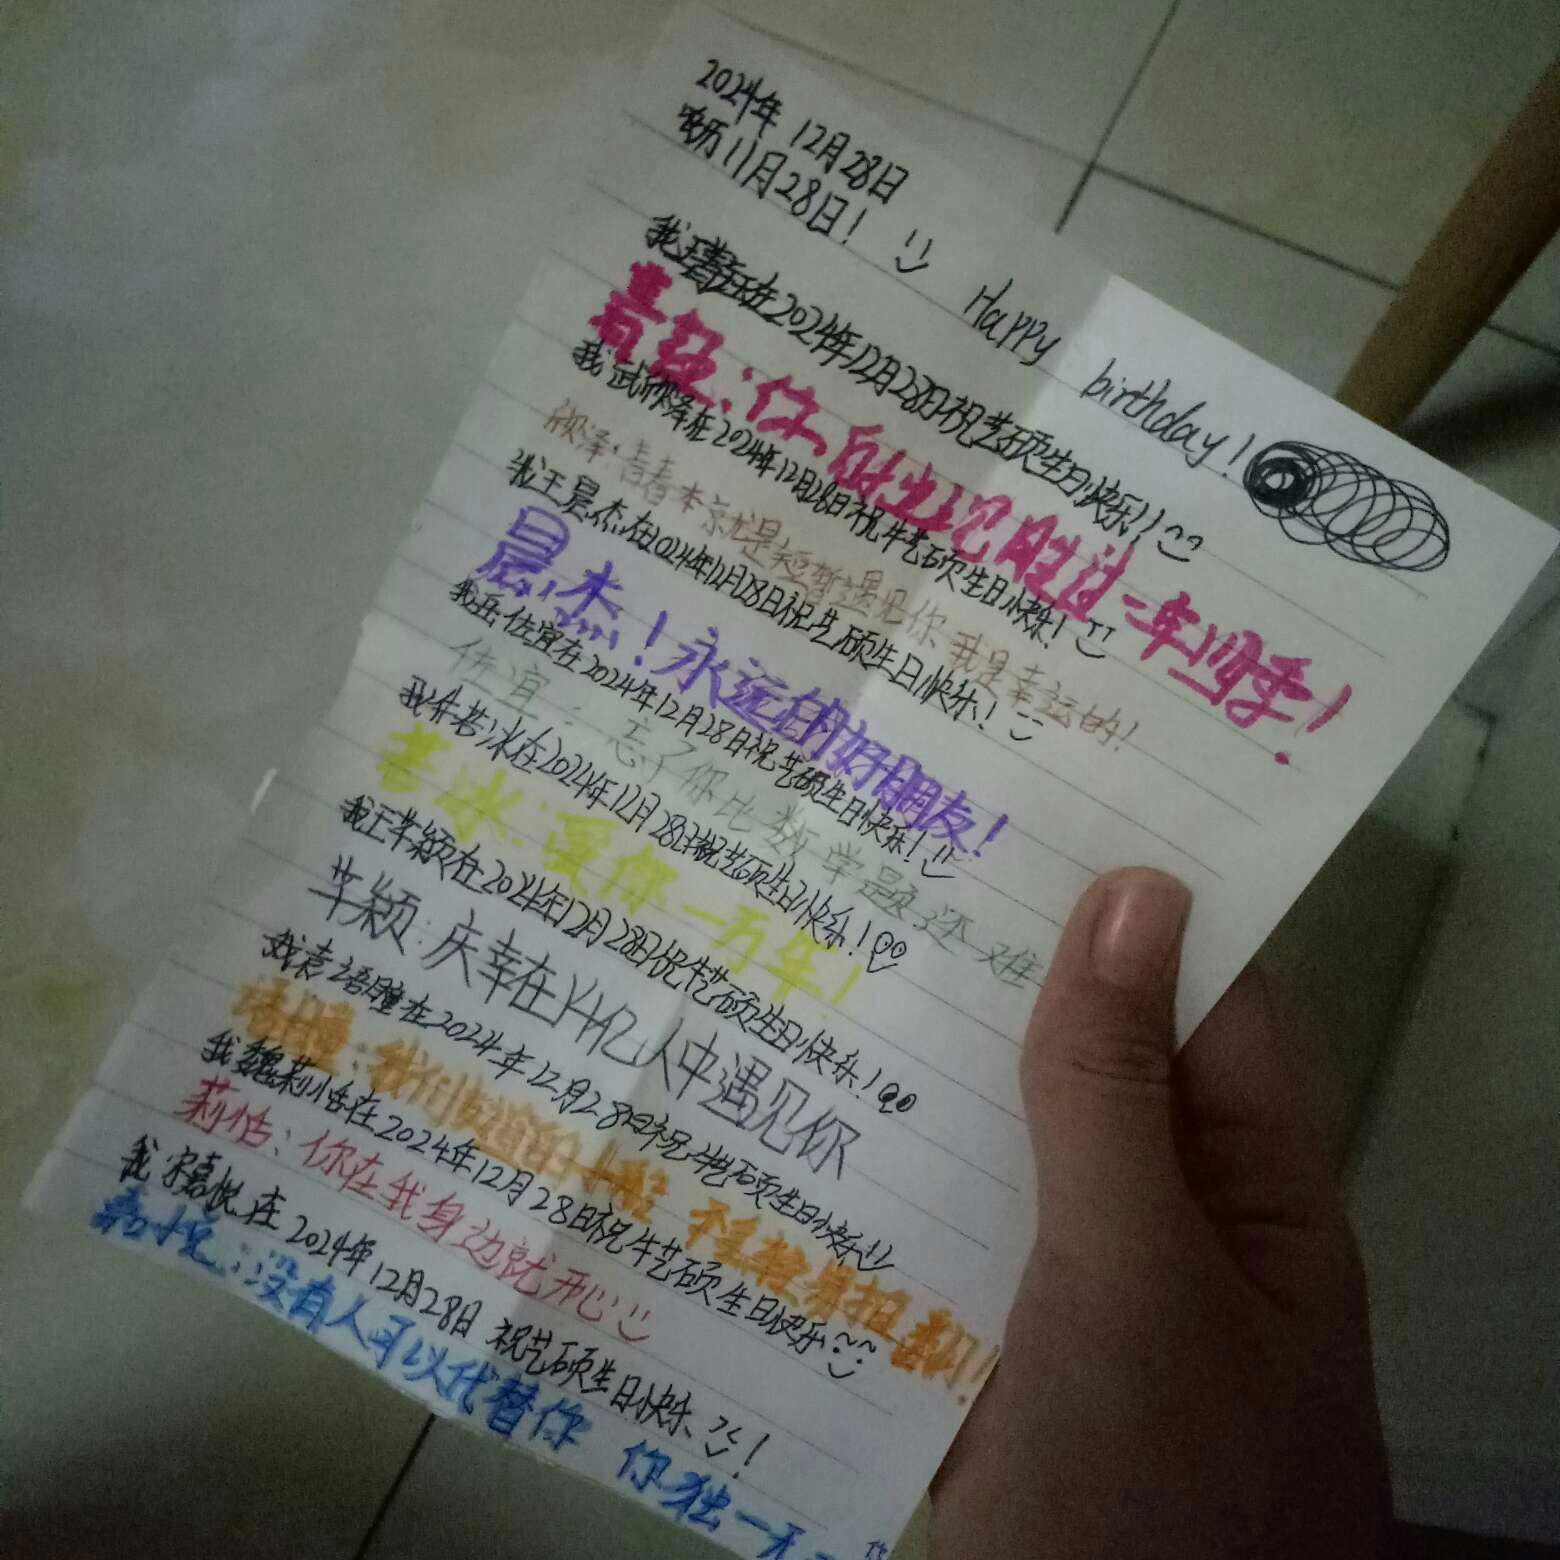 2024年 12月28日
农历11月28日!
Happy birthday!
我 在2024年12月28日祝艺硕生日快乐!!
你的出现胜过一年四季!
我武欣泽在2024年12月28日祝牛艺硕生日快乐!
欣泽:青春本就是短暂遇见你 我是幸运的!
我王晨杰在2024年12月28日祝艺硕生日快乐!
晨杰!永远的好朋友!
我岳佐宜在2024年12月28日祝艺硕生日快乐!
佐宜:忘了你比数学题还难
我 若冰在2024年12月28日祝艺硕生日快乐!
若冰:爱你一万年!
我王芊颖在2024年12月28日祝牛艺硕生日快乐!
芊颖:庆幸在片亿人中遇见你
我袁语瞳在2024年12月28日祝牛艺硕生日快乐
语瞳:我们
我魏莉恬在2024年12月28日祝牛艺硕生日快乐
莉恬:你在我身边就开心
我宋嘉悦在2024年12月28日 祝艺硕生日快乐!
嘉悦:没有人可以代替你 你独一无